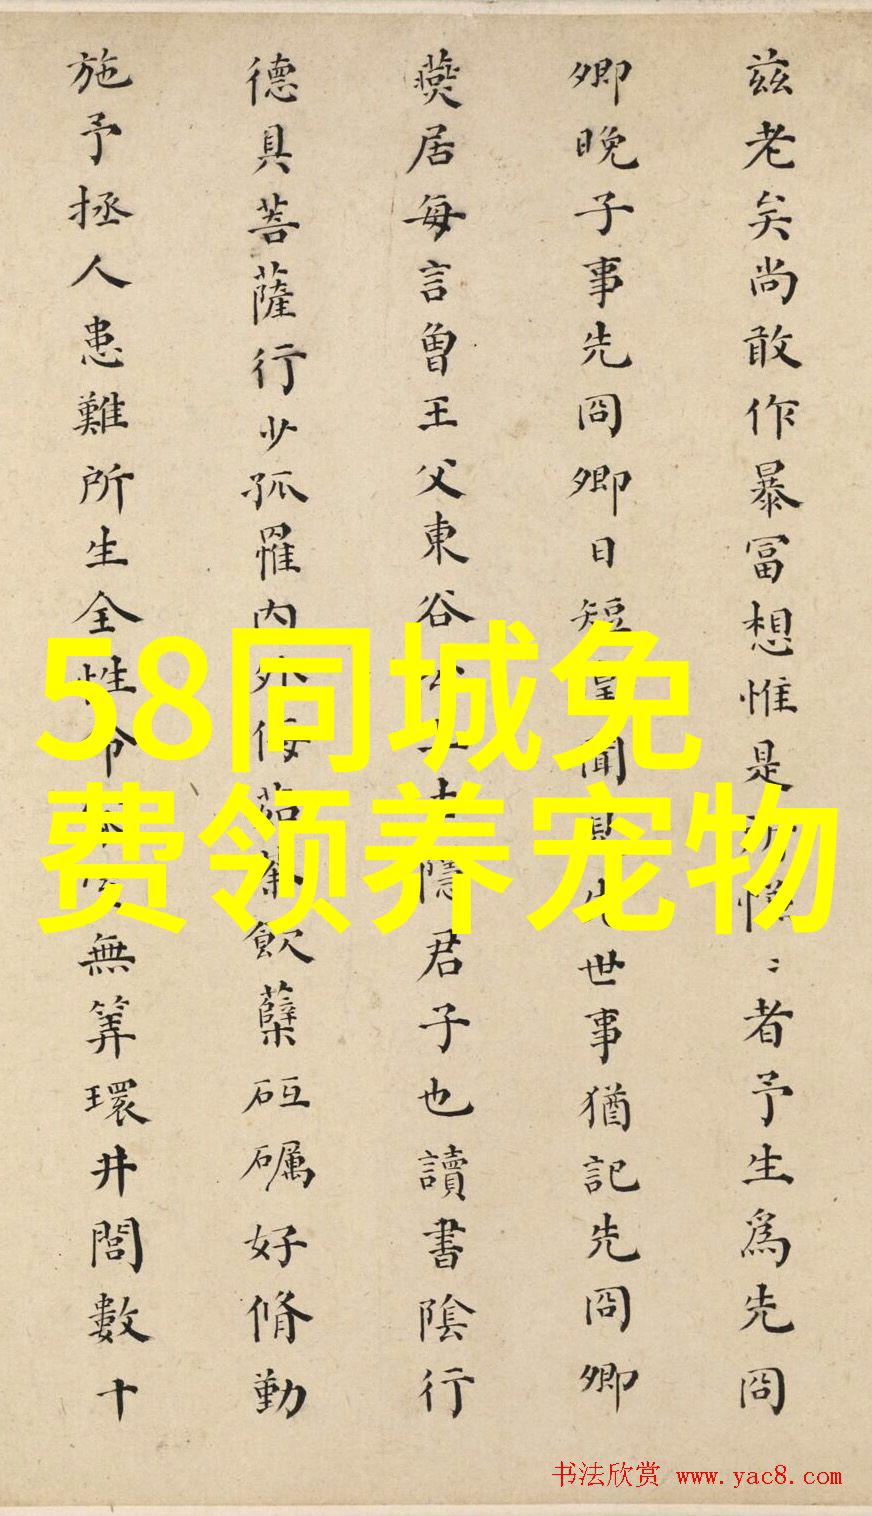 兹老矣尚敢作暴冨想惟是〻者予生爲先冏
卿晚子事先冏卿日短聞見先世事猶記先冏卿
燕居每言曾王父東谷公隱君子也讀書陰行
德具菩薩行少孤罹内外侮茹荼飲蘖砥礪好脩勤
施予拯人患難所生全性命無筭環井閭數十
58同城免
费领养宠物
书法欣赏 www.yac8.com